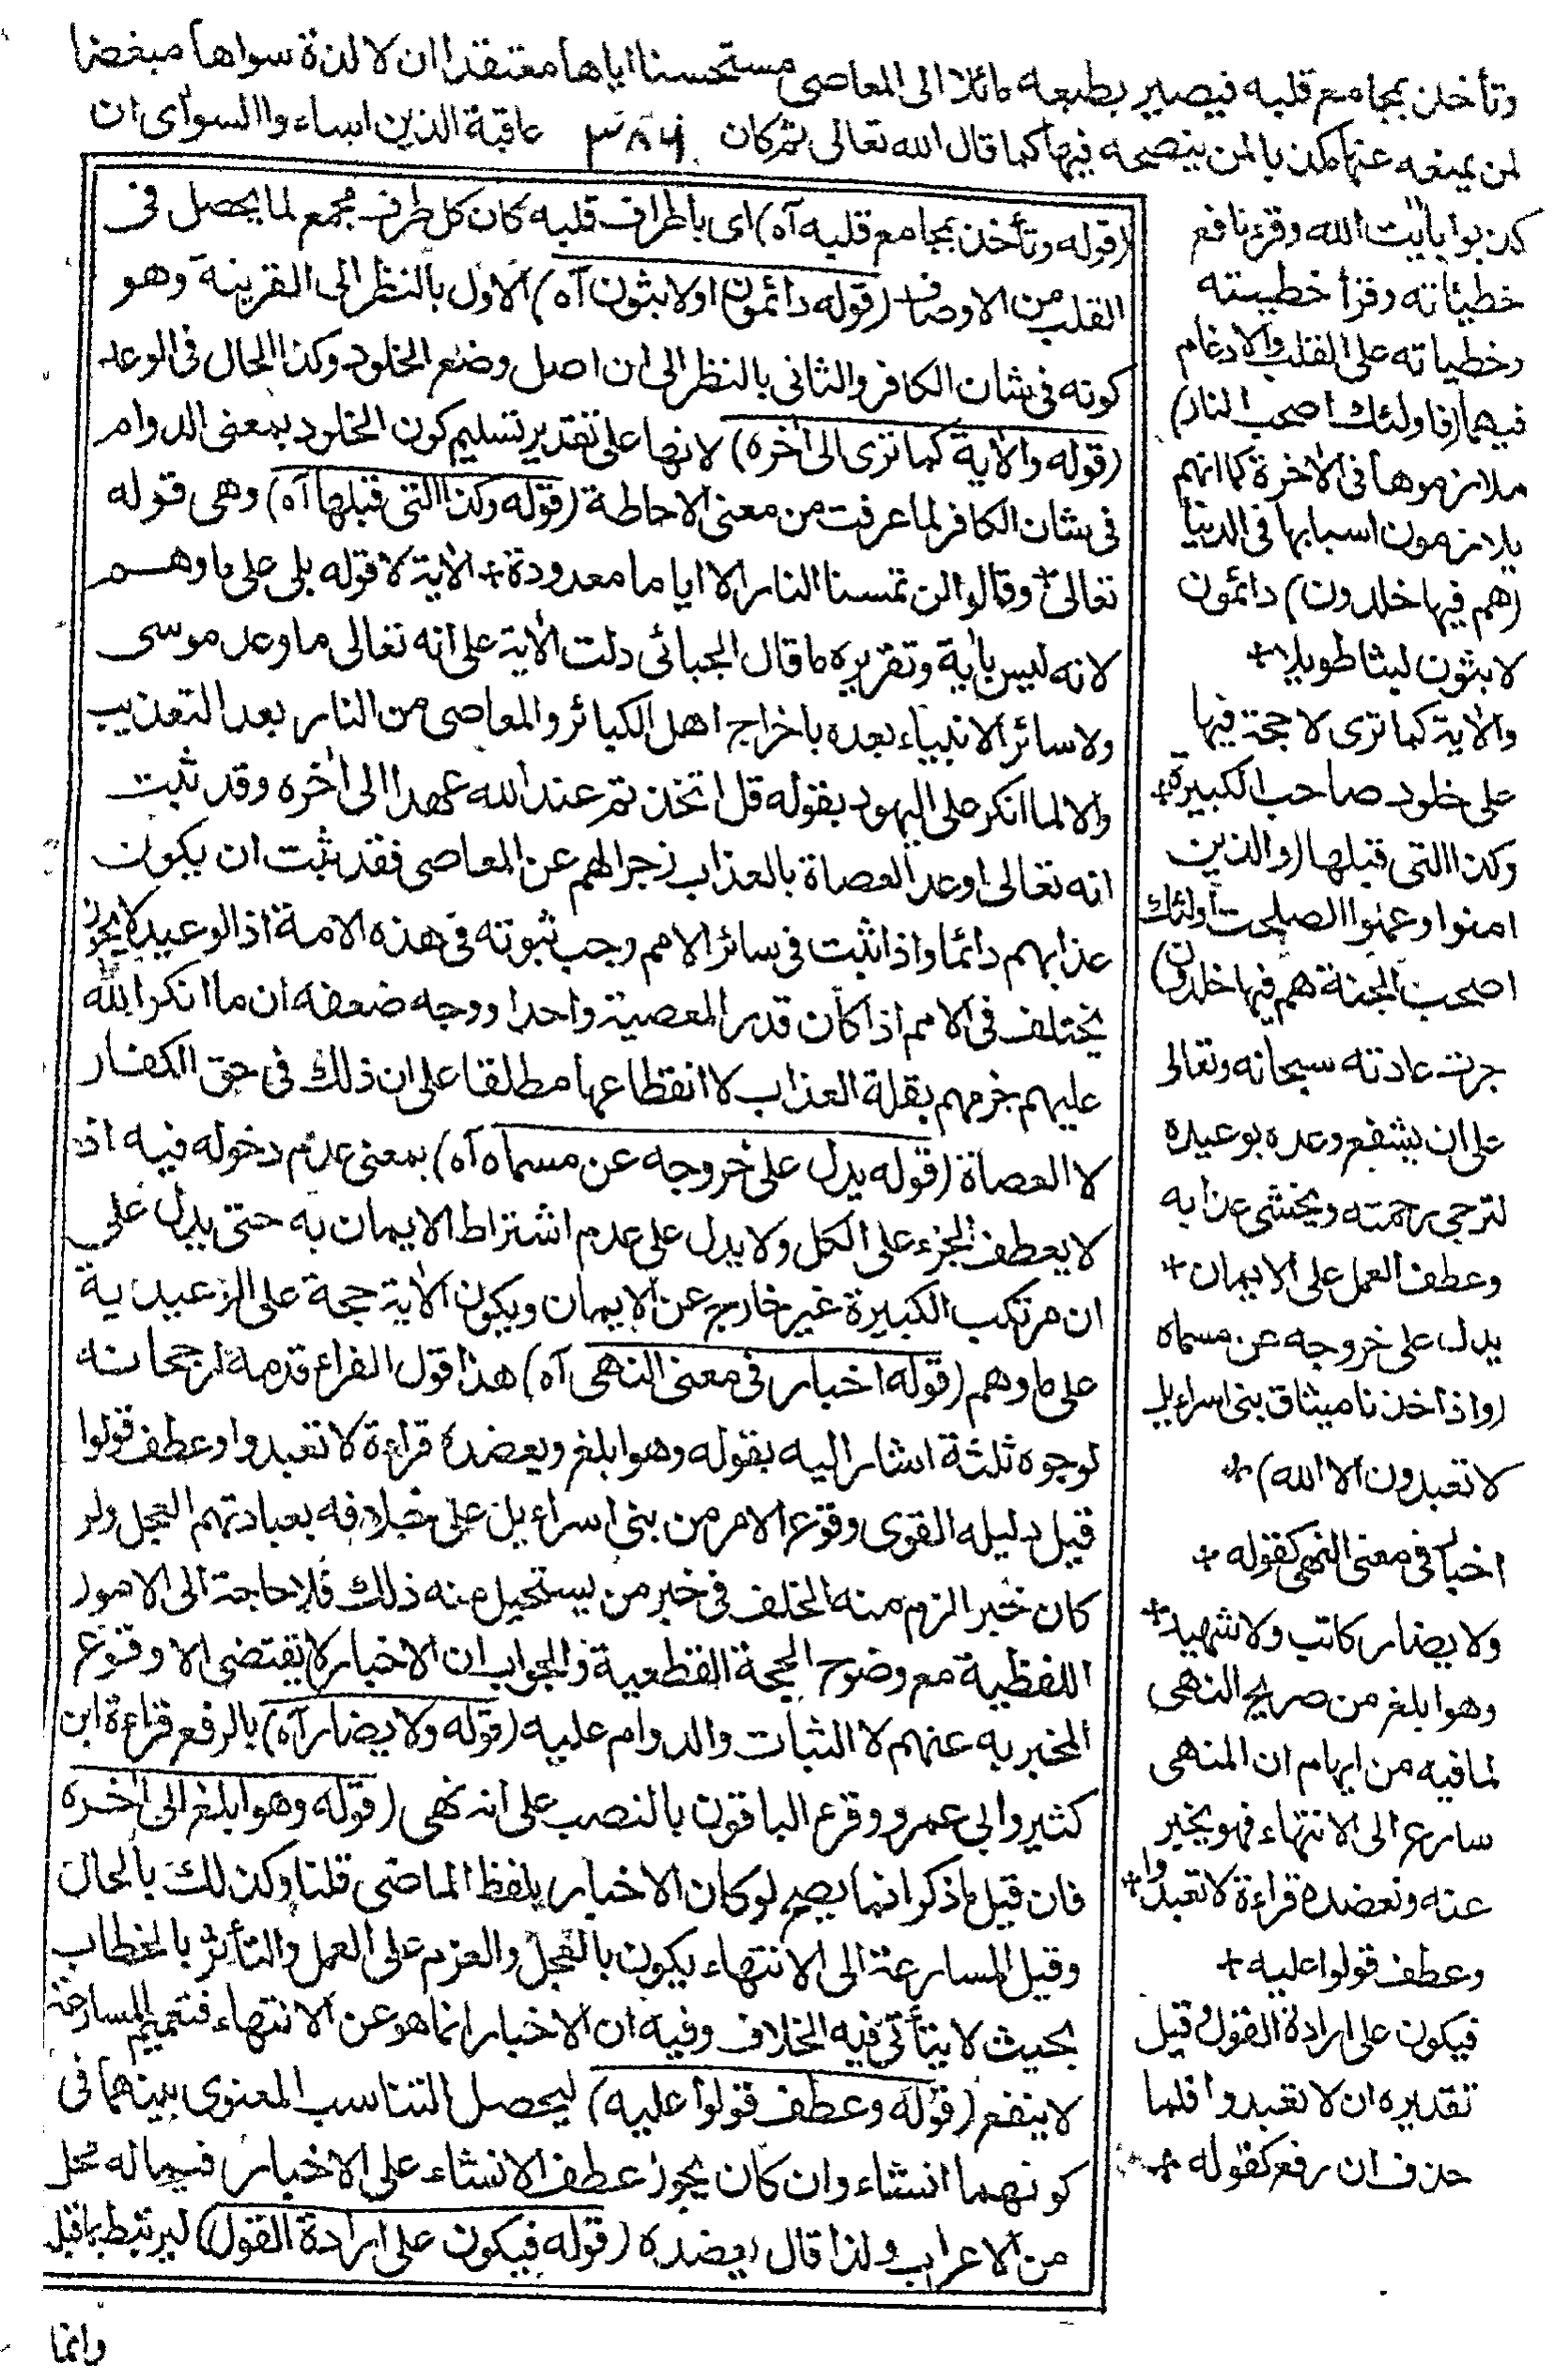 وتأخذ بمجامع قلبه فيصير بطبعه مائلا الى المعاصى مستحسنا اياها معتقدا ان لا لذة سواها مبغضا
لمن يمنعه عنها مكذبا لمن ينصحه فيها كما قال الله تعالى ثم كان عاقبة الذين اساءوا السوأى ان
كذبوا بايت الله وقرء نافع
خطيئاته وقرأ خطيته
وخطياته على القلب والادغام
فيهما (فاولئك اصحب النار)
ملازموها فى الاخرة كما انهم
يلازمون اسبابها فى الدنيا
(هم فيها خلدون) دائمون
لابثون لبثا طويلا+
والاية كما ترى لا حجة فيها
على خلود صاحب الكبيرة+
وكذا التى قبلها (والذين
امنوا وعملوا الصلحت اولئك
اصحب الجنة هم فيها خلدون)
جرت عادته سبحانه وتعالى
على ان يشفع وعده بوعيده
لترجى رحمته ويخشى عذابه
وعطف العمل على الايمان+
يدل على خروجه عن مسماه
(واذ اخذنا ميثاق بنى اسراءيل
لا تعبدون الا الله)+
اخبار فى معنى النهى كقوله+
ولا يضار كاتب ولا شهيد+
وهو ابلغ من صريح النهى
لما فيه من ايهام ان المنهى
سارع الى الانتهاء فهو يخبر
عنه وتعضده قراءة لا تعبدوا+
وعطف قولوا عليه+
فيكون على ارادة القول وقيل
تقديره ان لا تعبدوا فلما
حذف ان رفع كقوله+
(قوله وتأخذ بمجامع قلبه آه) اى باطراف قلبه كان كل طرف مجمع لما يحصل فى
القلب من الاوصاف (قوله دائمون او لابثون آه) الاول بالنظر الى القرينة وهو
كونه فى شان الكافر والثانى بالنظر الى ان اصل وضع الخلود وكذا الحال فى الوعد
(قوله والاية كما ترى الى اخره) لانها على تقدير تسليم كون الخلود بمعنى الدوام
فى شان الكافر لما عرفت من معنى الاحاطة (قوله وكذا التى قبلها آه) وهى قوله
تعالى+ وقالوا لن تمسنا النار الا اياما معدودة+ الاية لا قوله بلى على ما وهم
لانه ليس باية وتقريره ما قال الجبائى دلت الاية على انه تعالى ما وعد موسى
ولا سائر الانبياء بعده باخراج اهل الكبائر والمعاصى من النار بعد التعذيب
والا لما انكر على اليهود بقوله قل اتخذتم عند الله عهدا الى اخره وقد ثبت
انه تعالى اوعد العصاة بالعذاب زجرا لهم عن المعاصى فقد ثبت ان يكون
عذابهم دائما واذا ثبت فى سائر الامم وجب ثبوته فى هذه الامة اذ الوعيد لا يجوز
يختلف فى الامم اذا كان قدر المعصية واحدا ووجه ضعفه ان ما انكر الله
عليهم جزمهم بقلة العذاب لا انقطاعها مطلقا على ان ذلك فى حق الكفار
لا العصاة (قوله يدل على خروجه عن مسماه آه) بمعنى عدم دخوله فيه اذ
لا يعطف الجزء على الكل ولا يدل على عدم اشتراط الايمان به حتى يدل على
ان مرتكب الكبيرة غير خارج عن الايمان ويكون الاية حجة على الوعيدية
على ما وهم (قوله اخبار فى معنى النهى آه) هذا قول الفراء قدمه لرجحانه
لوجوه ثلثة اشار اليه بقوله وهو ابلغ ويعضده قراءة لا تعبدوا وعطف قولوا
قيل دليله القوى وقوع الامر من بنى اسراءيل على خلافه بعبادتهم العجل ولو
كان خبرا لزم منه الخلف فى خبر من يستحيل منه ذلك فلا حاجة الى الامور
اللفظية مع وضوح الحجة القطعية والجواب ان الاخبار لا يقتضى الا وقوع
المخبر به عنهم لا الثبات والدوام عليه (قوله ولا يضار آه) بالرفع قراءة ابن
كثير وابى عمرو وقرء الباقون بالنصب على انه نهى (قوله وهو ابلغ الى اخره
فان قيل ما ذكر انما يصح لو كان الاخبار بلفظ الماضى قلنا وكذلك بالحال
وقيل المسارعة الى الانتهاء يكون بالعجل والعزم على العمل والتأثر بالخطاب
بحيث لا يتأتى فيه الخلاف وفيه ان الاخبار انما هو عن الانتهاء فتعميم المسارعة
لا ينفع (قوله وعطف قولوا عليه) ليحصل التناسب المعنوى بينهما فى
كونهما انشاء وان كان يجوز عطف الانشاء على الاخبار فيما له محل
من الاعراب ولذا قال يعضده (قوله فيكون على ارادة القول) ليرتبط بما قبل
وانما